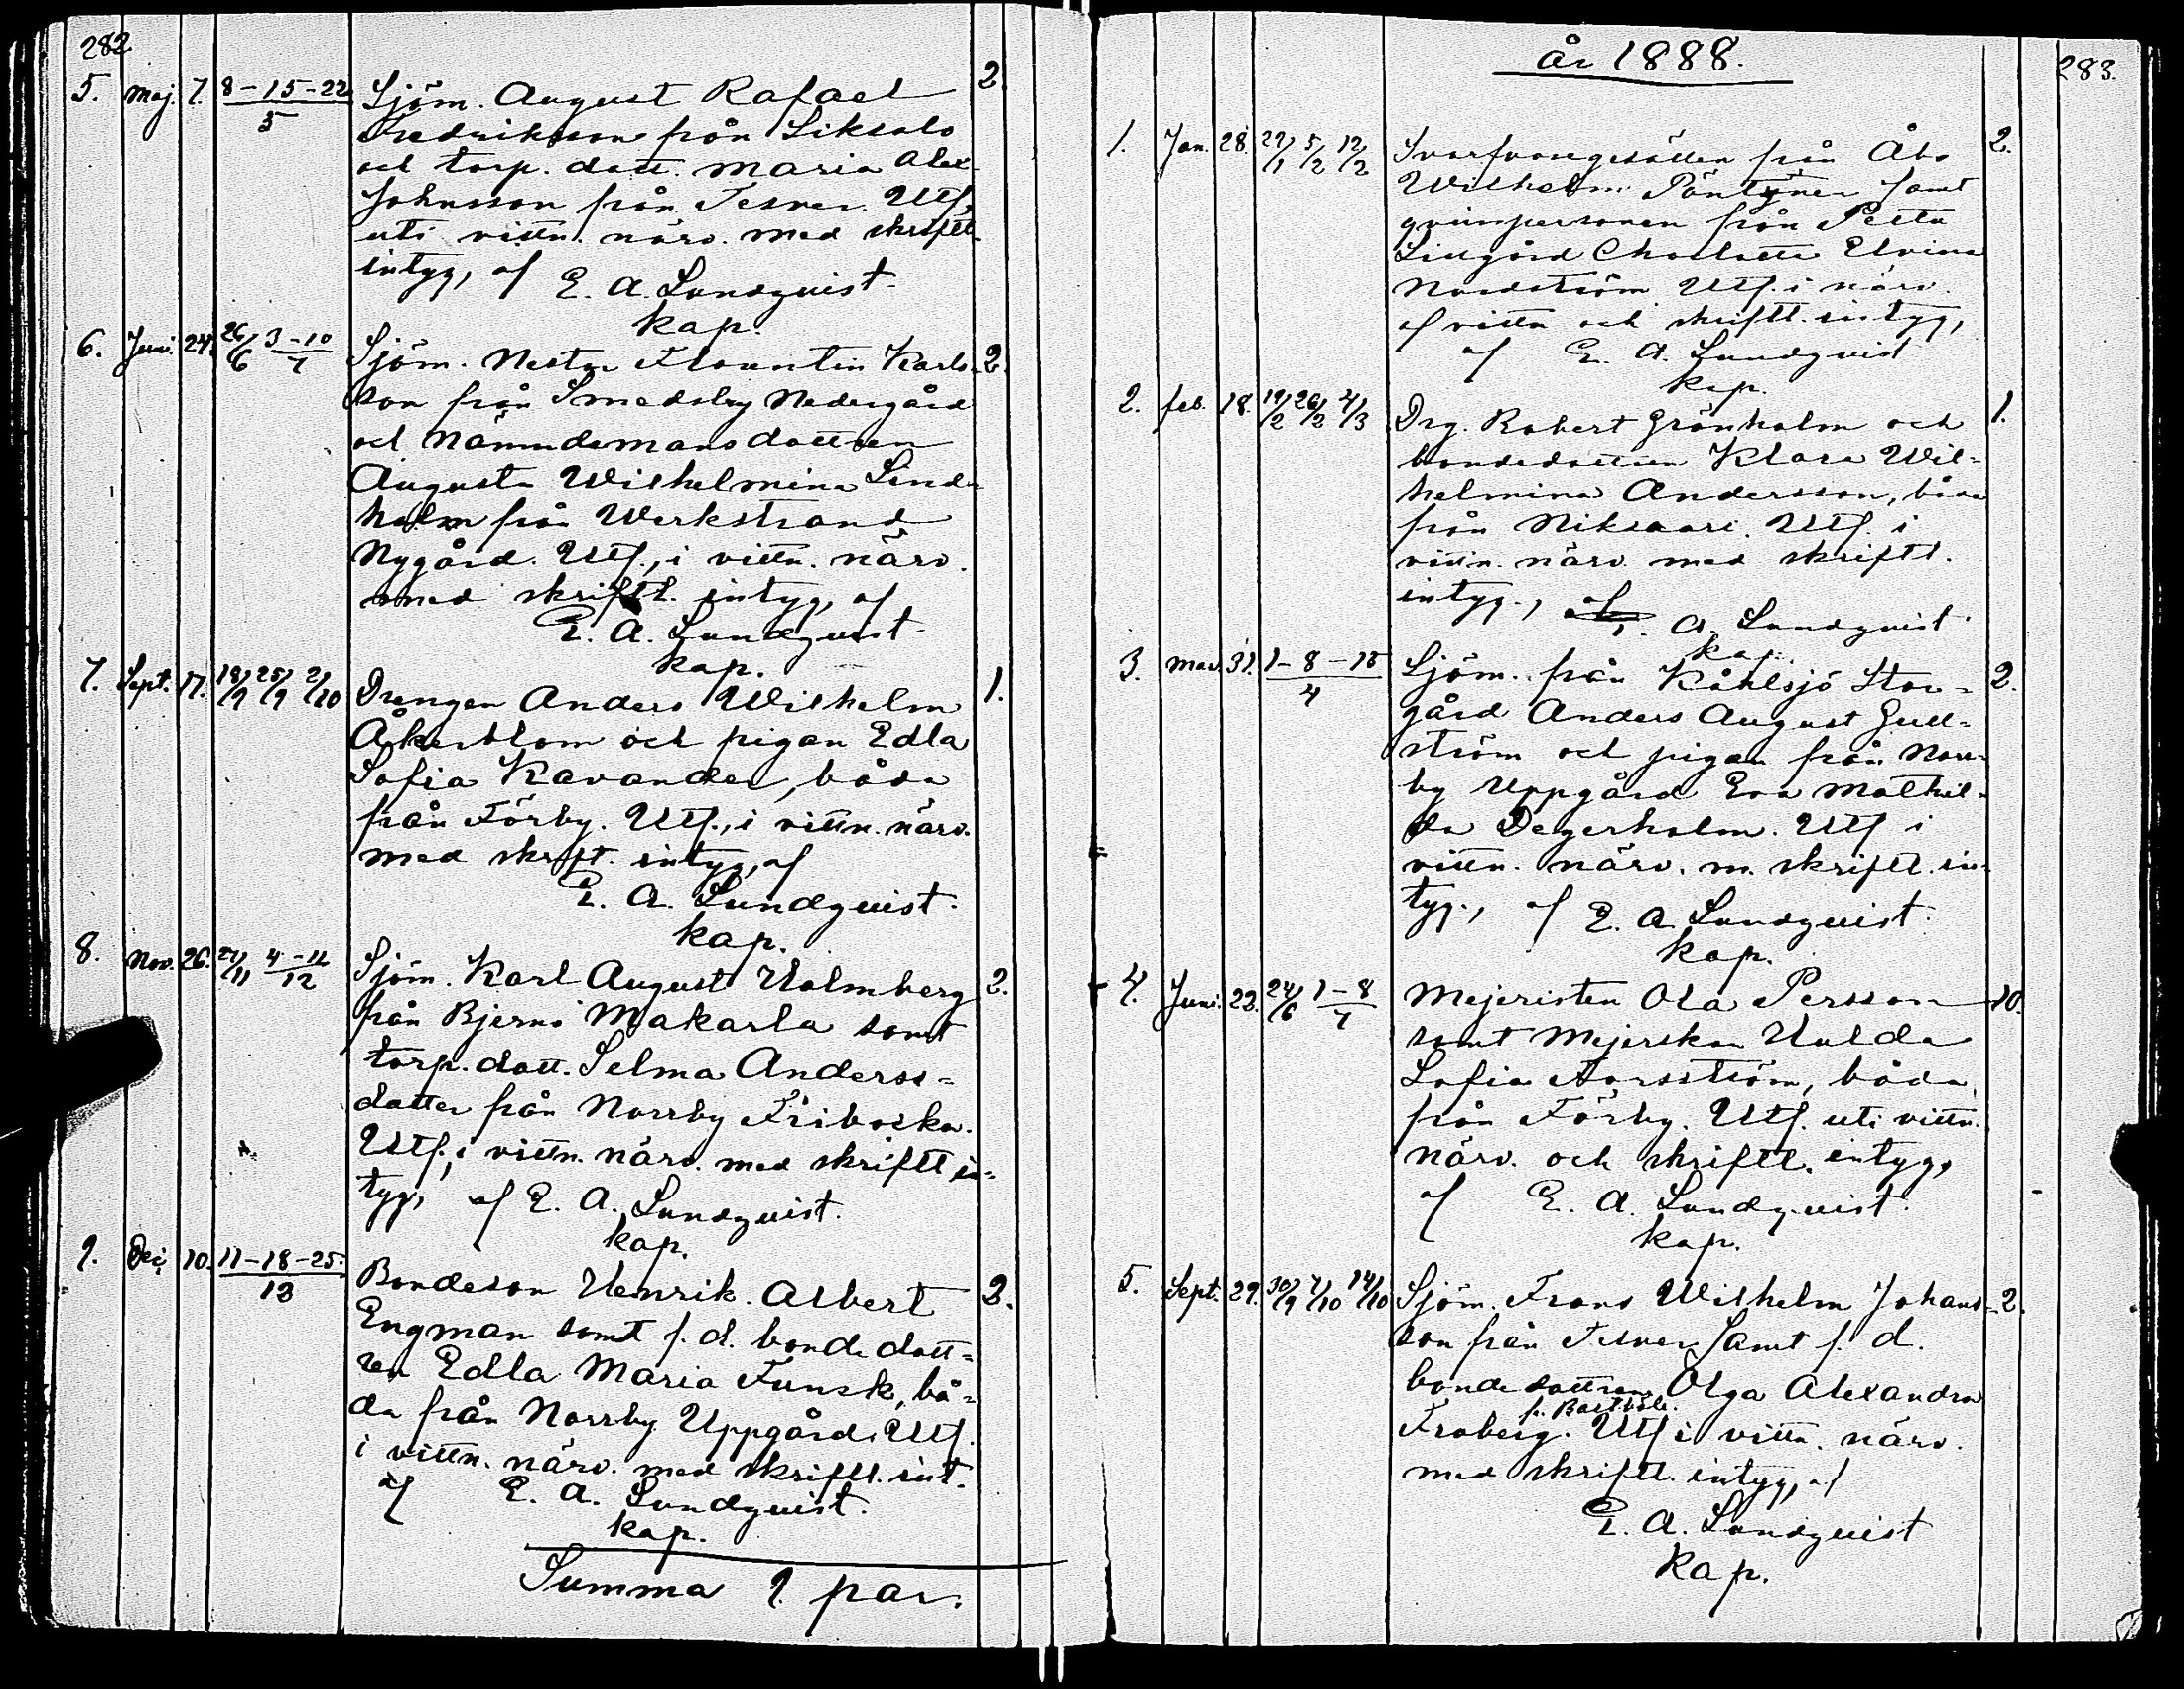 282
5. Maj. 7. 8-15-22/5 Sjöm. August Rafael 2
Fredriksson från Liksalo
och torp. dott. Maria Alex.
Johnsson från Tesver. Utf.
uti vittn. närv. med skriftl.
intyg, af E. A. Lundqvist.
kap.
6. Juni. 24. 26/6 3-10/7 Sjöm. Nestor Florentin Karls- 2.
son från Smedsby Nedergård
och Nämndemansdottren
Augusta Wilhelmina Lind-
holm från Werkstrand
Nygård. Utf., i vittn. närv.
med skriftl. intyg, af
E. A. Lundqvist.
kap.
7. Sept. 17. 18/9 25/9 2/10 Drengen Anders Wilhelm 1.
Åkerblom och pigan Edla
Sofia Kavander, båda
från Förby. Utf., i vittn. närv.
med skrift. intyg, af
E. A. Lundqvist.
kap.
8. Nov. 26. 27/11 4-11/12 Sjöm. Karl August Holmberg 2.
från Bjerno Makarla samt
torp. dott. Selma Anderss=
dotter från Norrby Friboska.
Utf., i vittn. närv. med skriftl in=
tyg, af E. A. Lundqvist.
kap.
9. Dec. 10. 11-18-25./12 Bondeson Henrik Albert 2.
Engman samt f.d. bonde dott=
ren Edla Maria Funsk, bå=
da från Norrby Uppgård. Utf.
i vittn. närv. med skriftl. int.
af E. A. Lundqvist.
kap.
Summa 9. par.
år 1888.
283.
1. Jan. 28. 29/1 5/2 12/2 Svarfvaregesällen från Åbo 2.
Wilhelm Pöntynen samt
qvinspersonen från Pettu
Lillgård Charlotte Elvina
Nordström Utf. i närv.
af vittn och skriftl. intyg,
af E. A. Lundqvist
kap.
2. feb. 18. 19/2 26/2 4/3 Drg. Robert Grönholm och 1.
bondedottren Klara Wil=
helmina Andersson, båda
från Niksaari. Utf. i
vittn. närv. med skriftl.
intyg., af E. A. Lundqvist.
kap.
3. mars 31. 1-8-15/4 Sjöm. från Kåhlsjö Stor= 2.
gård Anders August Gull=
ström och pigan från Norr=
by Uppgård Eva Mathil=
da Degerholm. Utf i
vittn. närv. m. skriftl. in=
tyg., af E. A. Lundqvist.
kap.
4. Juni. 23. 24/6 1-8/7 Mejeristen Ola Persson 10.
samt Mejerskan Hulda
Sofia Forsström, båda
från Förby. Utf. uti vittn.
närv. och skriftl. intyg,
af E. A. Lundqvist.
kap.
5. Sept. 29. 30/9 7/10 14/10 Sjöm. Frans Wilhelm Johans- 2.
son från Tesver samt f. d.
bonde dottren Olga Alexandra
fr. Bastböle.
Froberg. Utf i vittn. närv.
med skriftl. intyg, af
E. A. Lundqvist
kap.